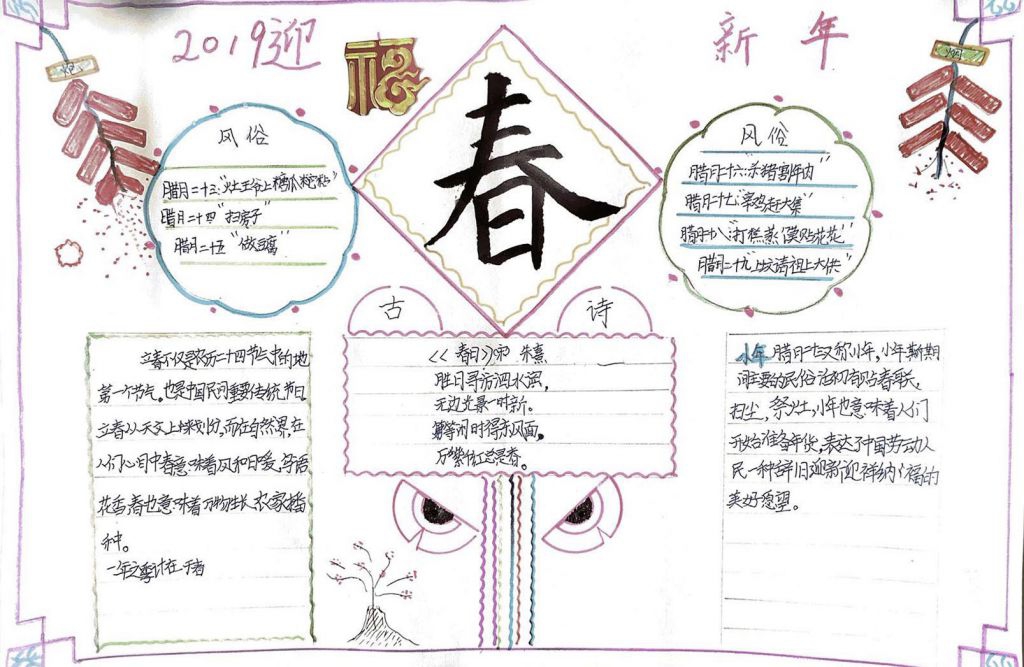 2019迎
福
新年
春
风俗
腊月二十三:"灶王爷上糖瓜粘"
腊月二十四"扫房子"
腊月二十五"做豆腐"
风俗
腊月二十六:杀猪割年肉"
腊月二十七:"宰鸡赶大集"
腊月十八:"打糕蒸馍贴花花"
腊月二十九"上坟请祖上大供"
古诗
《春日》宋 朱熹
胜日寻芳泗水滨,
无边光景一时新。
等闲时得东风面,
万紫红总是春。
立春不仅是农历二十四节气中的地
第一个节气。也是中国民间重要传统节日
立春从天文上来划分,而在自然界,在
人们心目中春意味着风和日暖,鸟语
花香,春也意味着万物生长,农家播
种。
一年之季计在于春
小年 腊月十七又称小年,小年斯期
间主要的民俗活动有贴春联,
扫尘,祭灶,小年也意味着人们
开始准备年货,表达了中国劳动人
民一种辞旧迎新迎祥纳福的
美好愿望。